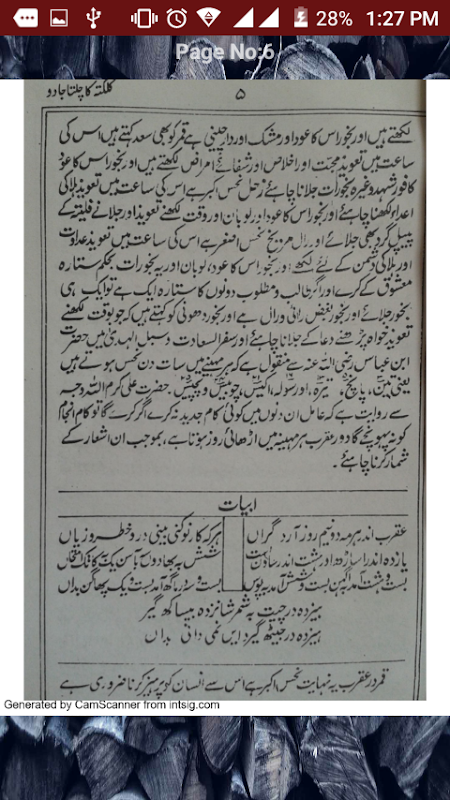 28% 1:27 PM
Page No:6
۵ کلکتہ کا چلتا جادو
لکھتے ہیں اور بخور اس کا عود اور مشک اور دارچینی ہے قمر کو بھی سعد کہتے ہیں اس کی
ساعت میں تعویذ محبت اور اخلاص اور شفائے امراض لکھتے ہیں اور بخور اس کا عود
کافور شہد وغیرہ بخورات جلانا چاہئے زحل نحس اکبر ہے اس کی ساعت میں تعویذ ہلاکی
اعداء لکھنا چاہئے اور بخور اس کا عود اور لوبان اور وقت لکھنے تعویذ اور جلانے فلیتہ کے
پیپل گرد بھی جلائے اور رال مریخ نحس اصغر ہے اس کی ساعت میں تعویذ عداوت
اور ہلاکی دشمن کے لئے لکھے اور بخور اس کا عود، لوبان اور یہ بخورات بحکم ستارہ
معشوق کے کرے اور اگر طالب و مطلوب دونوں کا ستارہ ایک ہے تو ایک ہی
بخور جلائے اور بخور بغض رائی ورال ہے اور بخور دھونی کو کہتے ہیں کہ جو بوقت لکھنے
تعویذ خواہ پڑھنے دعا کے جلانا چاہئے اور سفر السعادت وسبیل الہدیٰ میں حضرت
ابن عباس رضی اللہ عنہ سے منقول ہے کہ ہر مہینے میں سات دن نحس ہوتے ہیں
یعنی تین، پانچ، تیرہ، اور سولہ، اکیس، چوبیس، پچیس، حضرت علی کرم اللہ وجہہ
سے روایت ہے کہ عامل ان دنوں میں کوئی کام جدید نہ کرے اگر کرے گا تو کام انجام
کو نہ پہونچے گا دور مقرب ہر مہینہ میں اڑھائی روز ہوتا ہے، بموجب ان اشعار کے
شمار کرنا چاہئے۔
ابیات
عقرب اندر ہر مہ دو نیم روز آرد گراں ہر کہ کار نو کنی بینی در و خطر و زیاں
یازدہ اندر اساڑھ اور ہشت اندر ساون است شش بہ بھادوں
بست و بست و یک پھاگن بداں
ہیزدہ در چیت بہ شمر شانزدہ بیساکھ گیر
ہیزدہ در جیٹھ گیر ایں نمی دانی بداں
قمر در عقرب یہ نہایت نحس اکبر ہے اس سے انسان کو پرہیز کرنا ضروری ہے
Generated by CamScanner from intsig.com